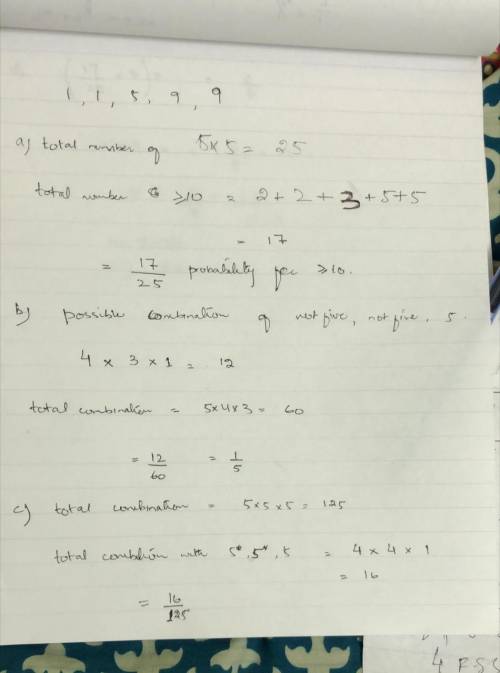 1, 1, 5, 9, 9
a) total number of 5×5 = 25
total number ≥10 = 2+2+3+5+5
= 17
= 17/25 probability for ≥10.
b) possible combination of not five, not five, 5.
4 × 3 × 1 = 12
total combination = 5×4×3 = 60
= 12/60 = 1/5
c) total combination = 5×5×5 = 125
total combition with 5*, 5*, 5 = 4 × 4 × 1
= 16
= 16/125
4 FSC